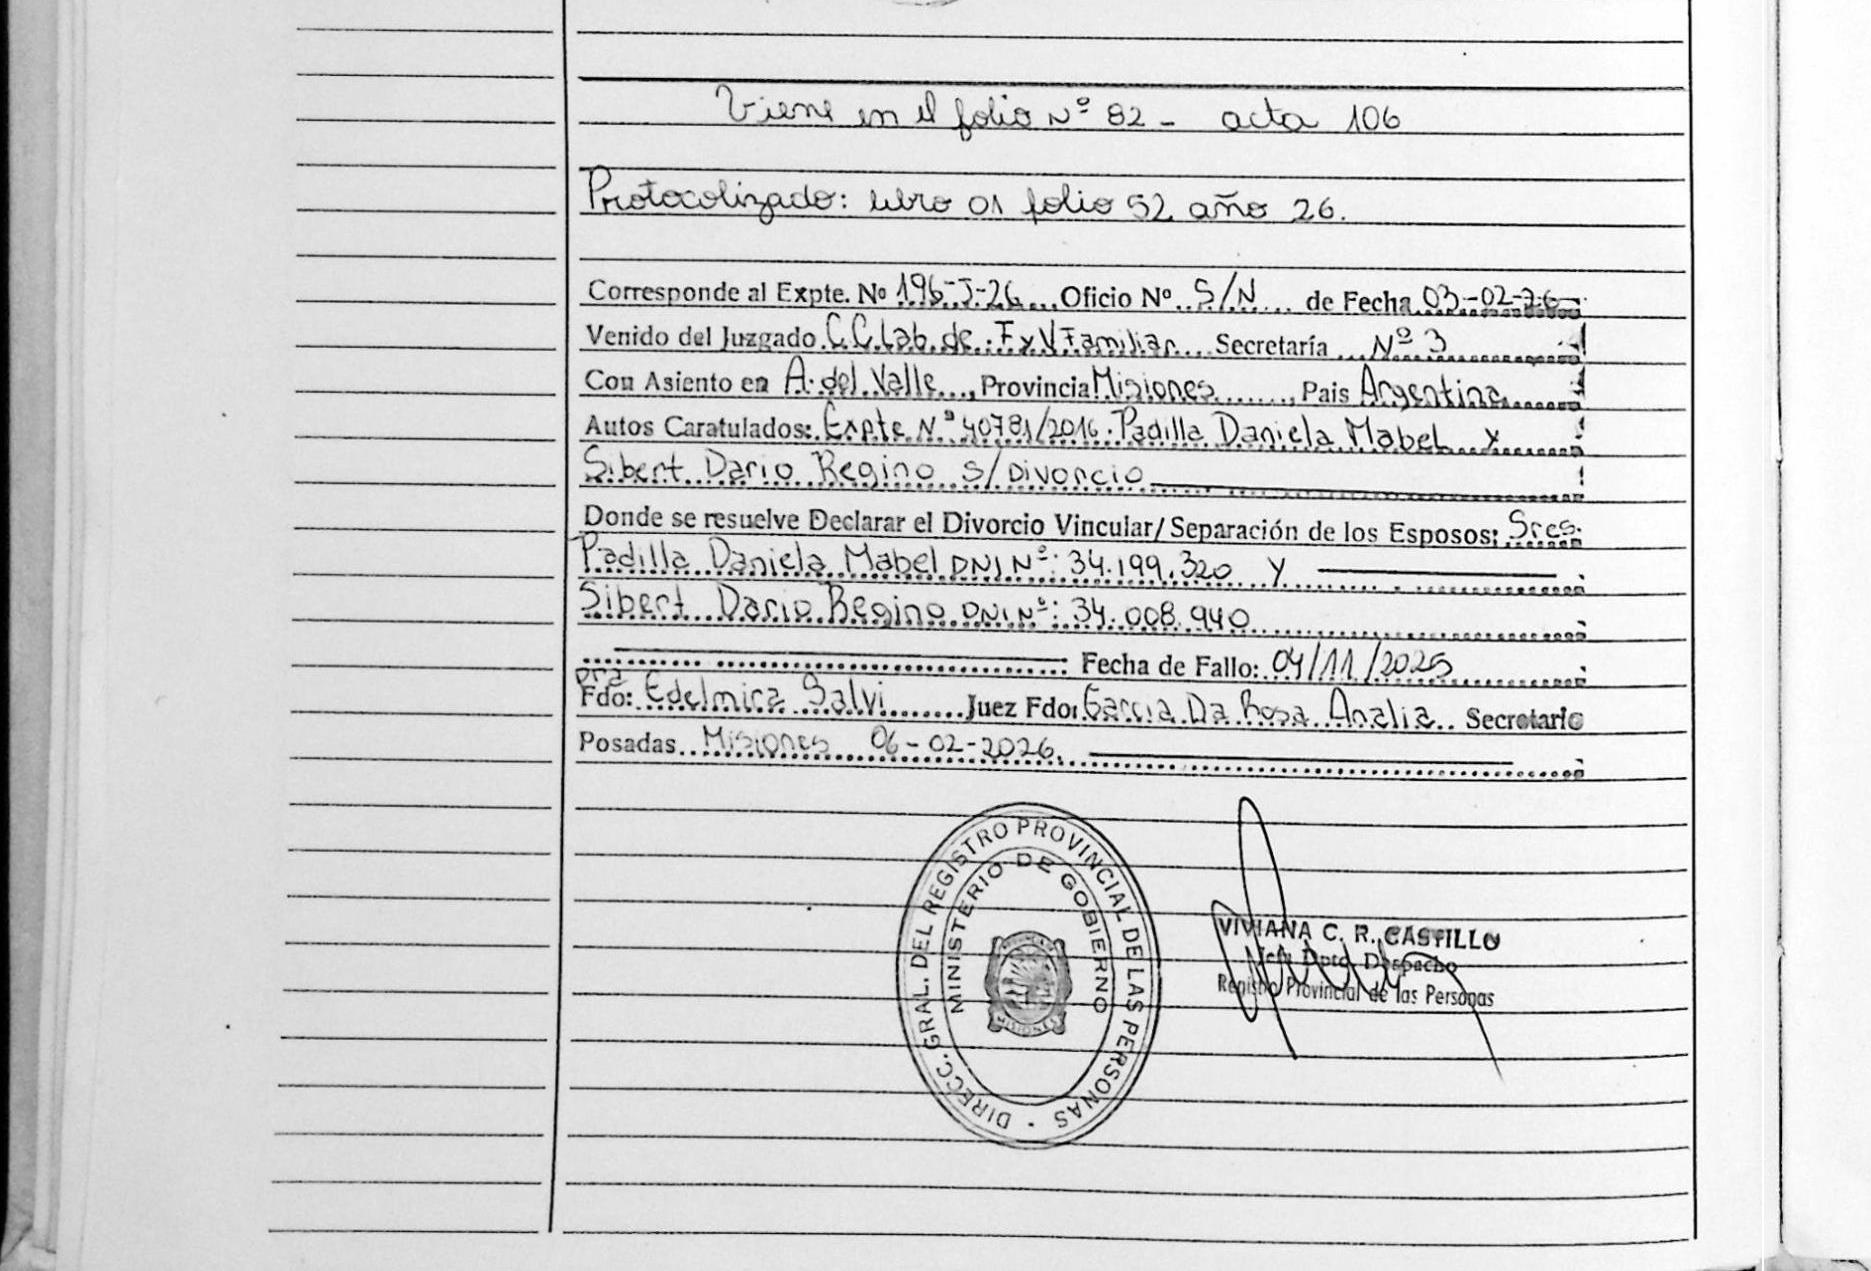 Viene en el folio Nº 82 - acta 106
Protocolizado: libro 01 folio 52 año 26.
Corresponde al Expte. Nº 196-J-26 Oficio Nº S/N de Fecha 03-02-26
Venido del Juzgado C.C.Lab.de. F y V Familiar Secretaría Nº 3
Con Asiento en A. del Valle, Provincia Misiones, Pais Argentina
Autos Caratulados: Expte Nº 40781/2016. Padilla Daniela Mabel y
Sibert Dario Regino S/ Divorcio
Donde se resuelve Declarar el Divorcio Vincular/Separación de los Esposos: Sres.
Padilla Daniela Mabel DNI Nº: 34.199.320 y
Sibert Dario Regino DNI Nº: 34.008.940
Fecha de Fallo: 04/11/2025
Dra
Fdo: Edelmira Salvi Juez Fdo: Garcia Da Rosa Analia Secretario
Posadas Misiones 06-02-2026.
DIRECC. GRAL. DEL REGISTRO PROVINCIAL DE LAS PERSONAS
MINISTERIO DE GOBIERNO
MISIONES
VIVIANA C. R. CASTILLO
Jefa Dpto. Despacho
Registro Provincial de las Personas